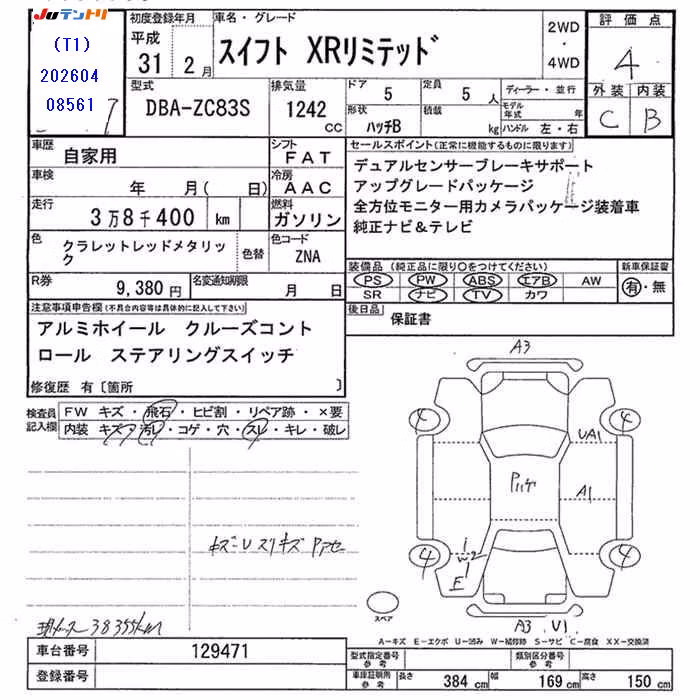 JUテントリ
(T1)
202604
08561
7
初度登録年月
平成
31年 2月
車名・グレード
スイフト XRリミテッド
2WD
・
4WD
評価点
4
外装 内装
C B
型式
DBA-ZC83S
排気量
1242
CC
ドア
5
定員
5人
ディーラー・並行
形状
ハッチB
積載
kg
モデル年式 年
ハンドル 左・右
車歴
自家用
シフト
FAT
車検
年 月( 日)
冷房
AAC
走行
3万8千400 km
燃料
ガソリン
色
クラレットレッドメタリック
色替
色コード
ZNA
R券
9,380円
名変通知期限
月 日
セールスポイント(正常に機能するものに限ります)
デュアルセンサーブレーキサポート
アップグレードパッケージ
全方位モニター用カメラパッケージ装着車
純正ナビ&テレビ
装備品(純正品に限り○をつけてください)
PS PW ABS エアB AW
SR ナビ TV カワ
新車保証書
有・無
後日品
保証書
注意事項申告欄(不具合内容等は具体的に記入して下さい)
アルミホイール クルーズコント
ロール ステアリングスイッチ
修復歴 有〔箇所 〕
検査員記入欄
FW キズ・飛石・ヒビ割・リペア跡・×要
内装 キズ・汚レ・コゲ・穴・スレ・キレ・破レ
A3
4
4
UA1
A1
4
4
W2
E
A3 U1
スペア
A-キズ E-エクボ U-凹み W-補修跡 S-サビ C-腐食 XX-交換済
38355km
車台番号
129471
登録番号
型式指定番号
参考
類別区分番号
参考
車庫証明用
参考
長さ 384cm
幅 169cm
高さ 150cm